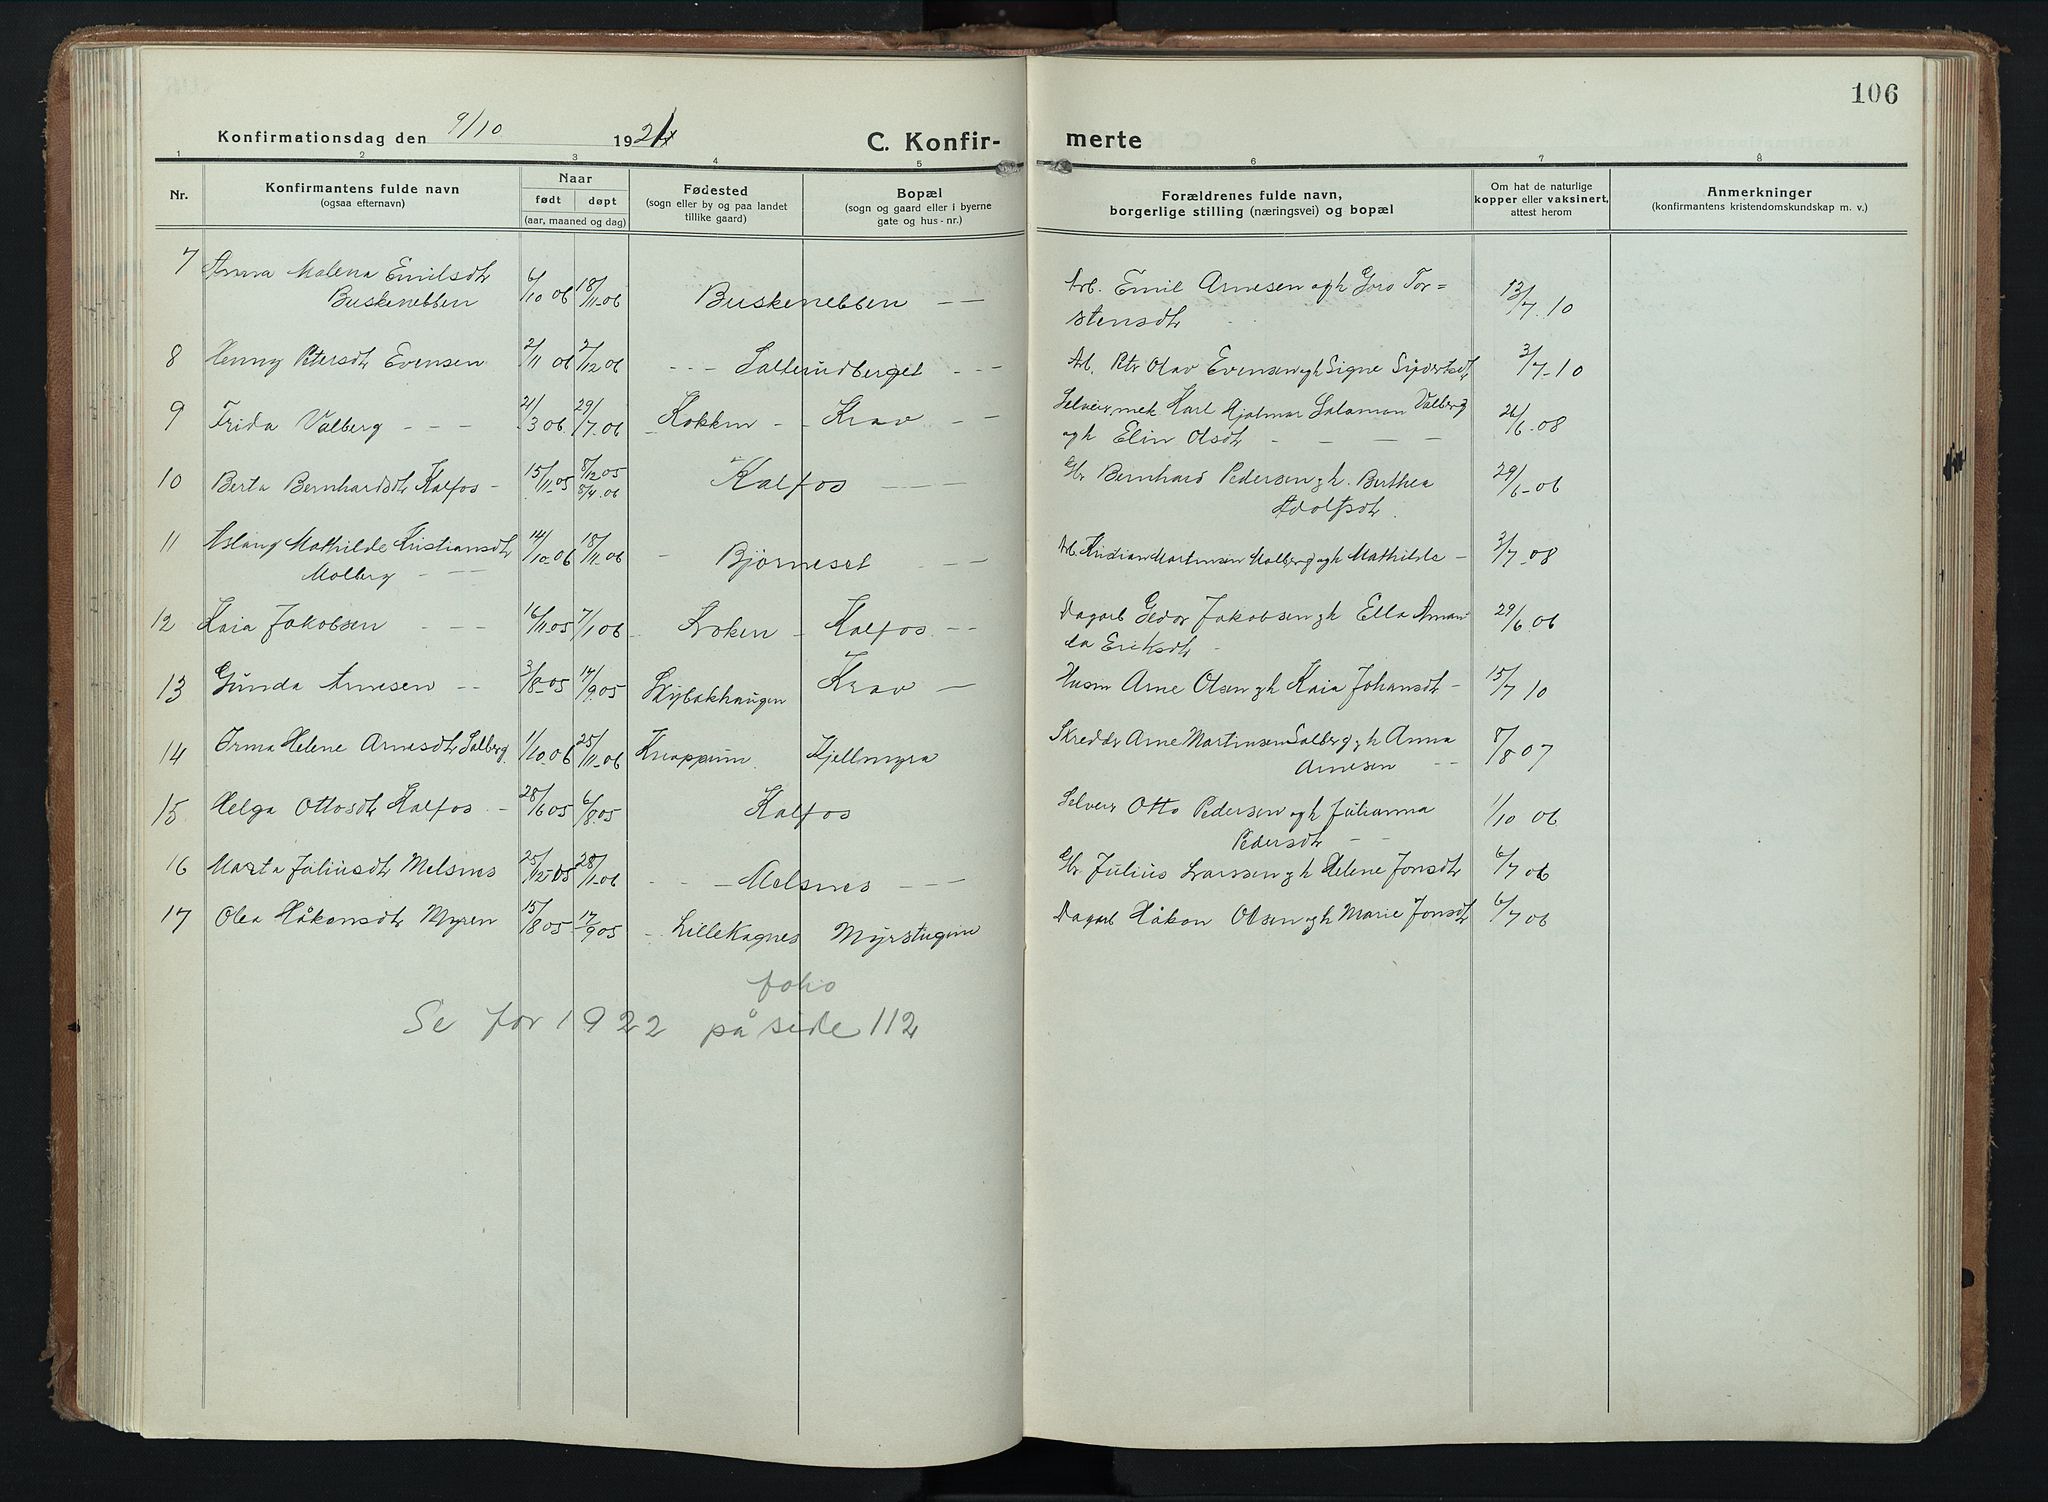 106
Konfirmationsdag den 9/10 1921
C. Konfir-
merte
1 2 3 4 5 6 7 8
Nr.
Konfirmantens fulde navn
(ogsaa efternavn)
Naar
født døpt
(aar, maaned og dag)
Fødested
(sogn eller by og paa landet
tillike gaard)
Bopæl
(sogn og gaard eller i byerne
gate og hus-nr.)
Forældrenes fulde navn,
borgerlige stilling (næringsvei) og bopæl
Om hat de naturlige
kopper eller vaksinert,
attest herom
Anmerkninger
(konfirmantens kristendomskundskap m. v.)
7 Anna Malena Emilsdtr
Buskenebben 6/10 06 18/11-06 Buskenebben — — Arb. Emil Arnesen og h Goro Tor=
stensdtr 13/7.10
8 Henny Petersdtr Evensen 2/11 06 2/12 06 - - - - - - Arb. Petr Olav Evensen og h Signe 3/7-10
9 Frida Valberg - - - 21/3 06 29/7-06 - Kokken - - Krav - Selveier, mek Karl Hjalmar Salamon Valberg
og h Elin Olsdtr - - - - 26/6-08
10 Berta Bernhardsdtr Kalfos - 15/11-05 8/12 05
8/4.06 Kalfos - - - Gbr Bernhard Pedersen og h. Berthea
Adolfsdtr 29/6-06
11 Aslaug Mathilde Kristiansdtr
Molberg - - - 14/10-06 18/11-06 - Bjørneset - - - Arb. Kristian Martinsen Molberg og h Mathilde - 3/7-08
12 Kaia Jakobsen - - - 16/11-05 7/1 06 - - Kalfos - - Dagarb Gedor Jakobsen og h Ella Aman
da Eriksdtr - 29/6.06
13 Gunda Arnesen - - 3/8-05 17/9.05 Skybakhaugen Krav - Husm Arne Olsen og h Kaia Johansdtr - 15/7 10
14 Irma Helene Arnesdtr Salberg 1/10-06 25/11-06 Knappum Kjellmyra Skredder Arne Martinsen Salberg og h Anna
Arnesen - - 8/8 07
15 Helga Ottosdtr Kalfos - 28/6 05 6/8.05 Kalfos Selveier Otto Pedersen og h Julianna
Pedersdtr - - 1/10 06
16 Marta Juliusdtr Melsnes 25/12-05 28/1-06 - - - Melsnes - - - Gbr Julius Larssen og h Helene Jonsdtr 6/7 06
17 Olea Håkonsdtr Myren 15/8 05 17/9 05 - Lillekagnes Myrstugun Dagarb Håkon Olsen og h Marie Jonsdtr 6/7 06
folio
Se for 1922 på side 112